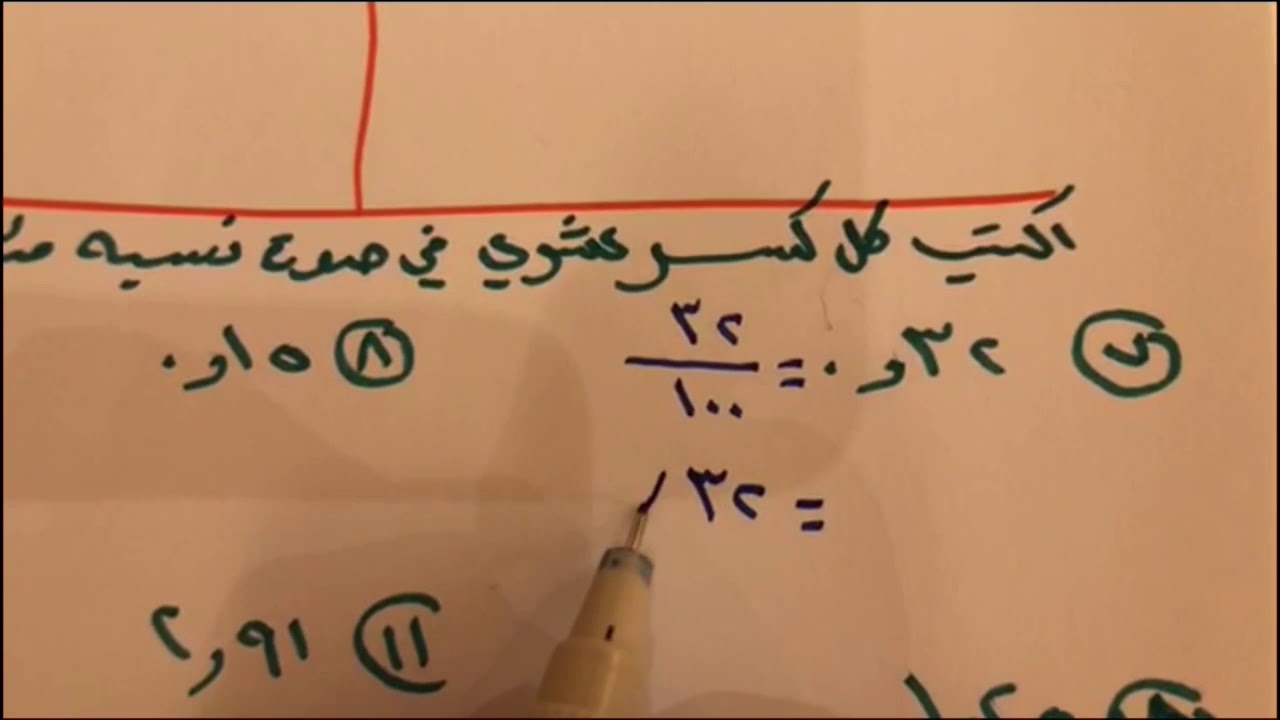 اكتب كل كسر عشري في صورة نسبة
٧ ٠,٣٢ = ٣٢/١٠٠
٨ ٠,١٥
= ٣٢
١١ ٢,٩١